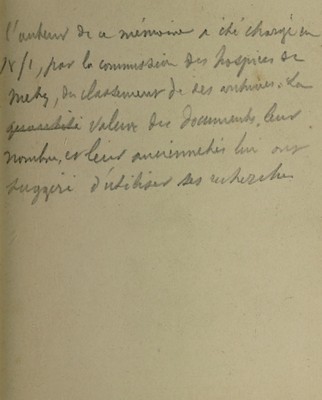 L'auteur de ce mémoire a été chargé en
par la commission des hospices de
Metz, du classement de ses archives. La
valeur des documents, leur
nombre, et leur anciennetés lui ont
suggéré d'utiliser ses recherches